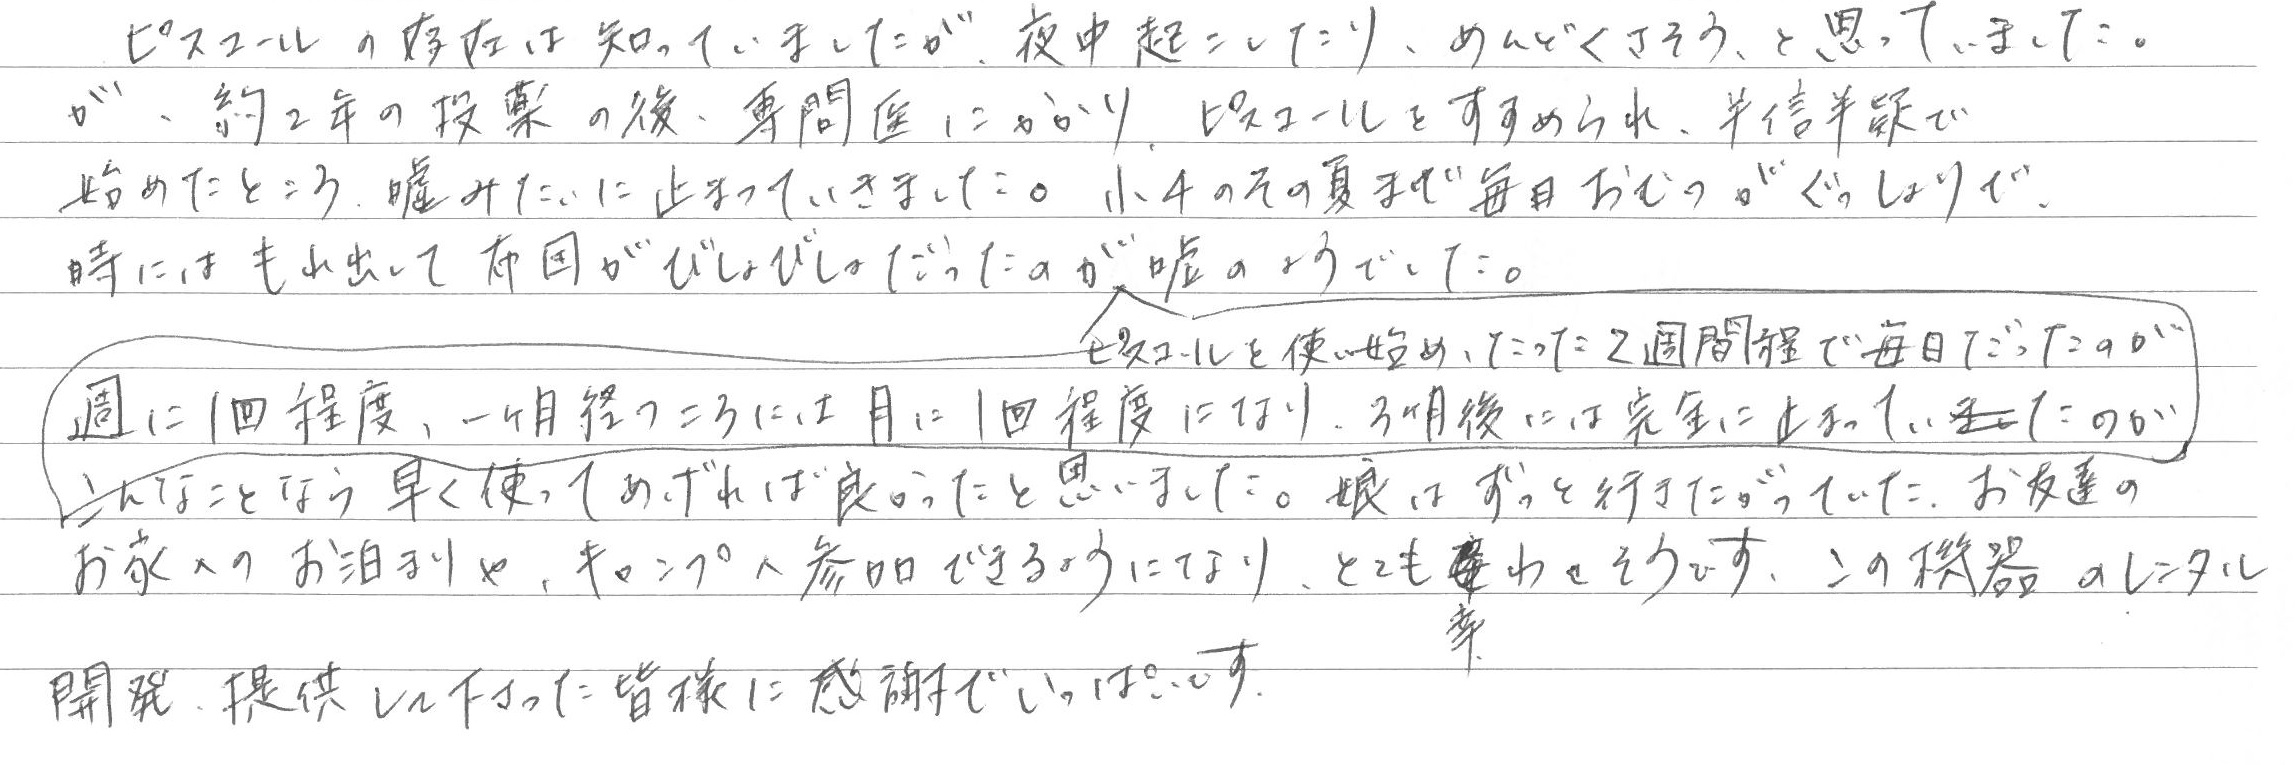 ピスコールの存在は知っていましたが、夜中起こしたり、めんどくさそう、と思っていました。
が、約2年の投薬の後、専門医にかかり、ピスコールをすすめられ、半信半疑で
始めたところ、嘘みたいに止まっていきました。小4のその夏まで毎日おむつがぐっしょりで、
時にはもれ出して布団がびしょびしょだったのが嘘のようでした。
ピスコールを使い始め、たった2週間程で毎日だったのが
週に1回程度、一ヶ月経つころには月に1回程度になり、3ヶ月後には完全に止まっていましたのが
こんなことなら早く使ってあげれば良かったと思いました。娘はずっと行きたがっていた、お友達の
お家へのお泊まりや、キャンプへ参加できるようになり、とても幸わせそうです、この機器のレンタル
幸
開発、提供して下さった皆様に感謝でいっぱいです。